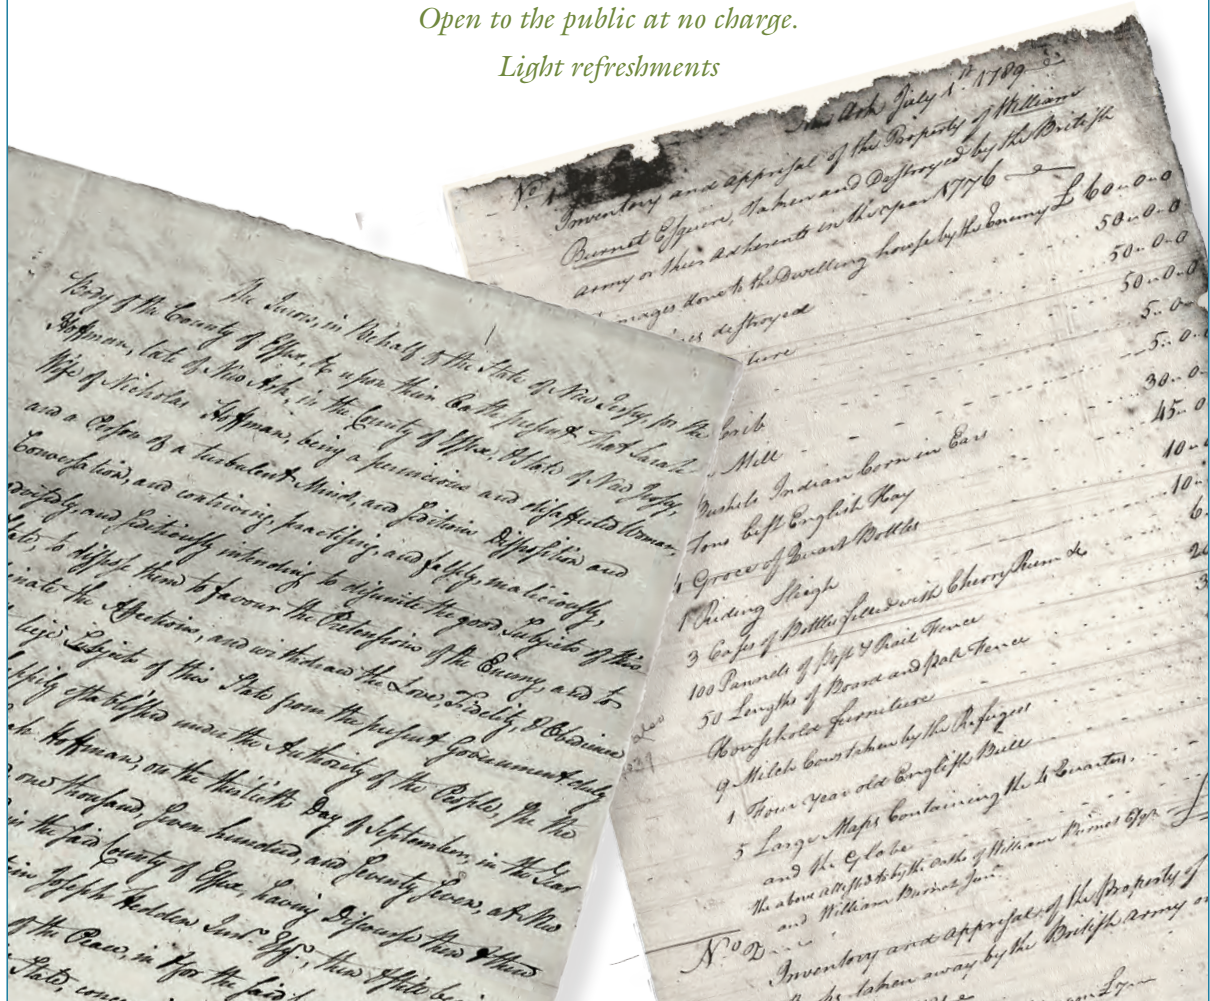 Open to the public at no charge.
Light refreshments
The Jurors, in Behalf of the State of New Jersey, for the
Body of the County of Essex, upon their Oath present That Sarah
Hoffman, late of New Ark, in the County of Essex, & State of New Jersey,
Wife of Nicholas Hoffman, being a pernicious and disaffected Woman,
and a Person of a turbulent Mind, and seditious Disposition and
Conversation, and contriving, practising, and falsely, maliciously,
and seditiously intending to disunite the good Subjects of this
State, to dispose them to favour the Pretensions of the Enemy, and to
the Affections, and withdraw the Love, Fidelity, & Obedience
liege Subjects of this State from the present Government duly
established under the Authority of the People, She the
Hoffman, on the thirtieth Day of September, in the Year
one thousand, seven hundred, and seventy seven, at New
in the said County of Essex, having Discourse then & there
Joseph Hedden Junr. Esqr., then & still
of the Peace, in & for the said
State,
Ark July 1st 1789
No. 1
Inventory and apprisal of the Property of William
Burnet Esquire, Taken and Destroyed by the British
army or their adherents in the year 1776
done to the Dwelling house by the Enemy £ 60 .. 0 .. 0
destroyed
50 .. 0 .. 0
50 .. 0 .. 0
50 .. 0 .. 0
Crib
Mill
Bushels Indian Corn in Ears
Tons best English Hay
Groce of Quart Bottles
1 Riding Sleigh
3 Cases of Bottles filled with Cherry Rum
100 Pannels of Post & Rail Fence
50 Lengths of Board and pale Fence
Household furniture
9 Milch Cows taken by the Refugees
1 Four year old English Bull
5 Large Maps Containing the 4 Quarters,
and the Globe
the above attested to by the oaths of William Burnet Esqr.
and William Burnet Jun
No. 2
Inventory and apprisal, of the Property of
taken away by the British army or